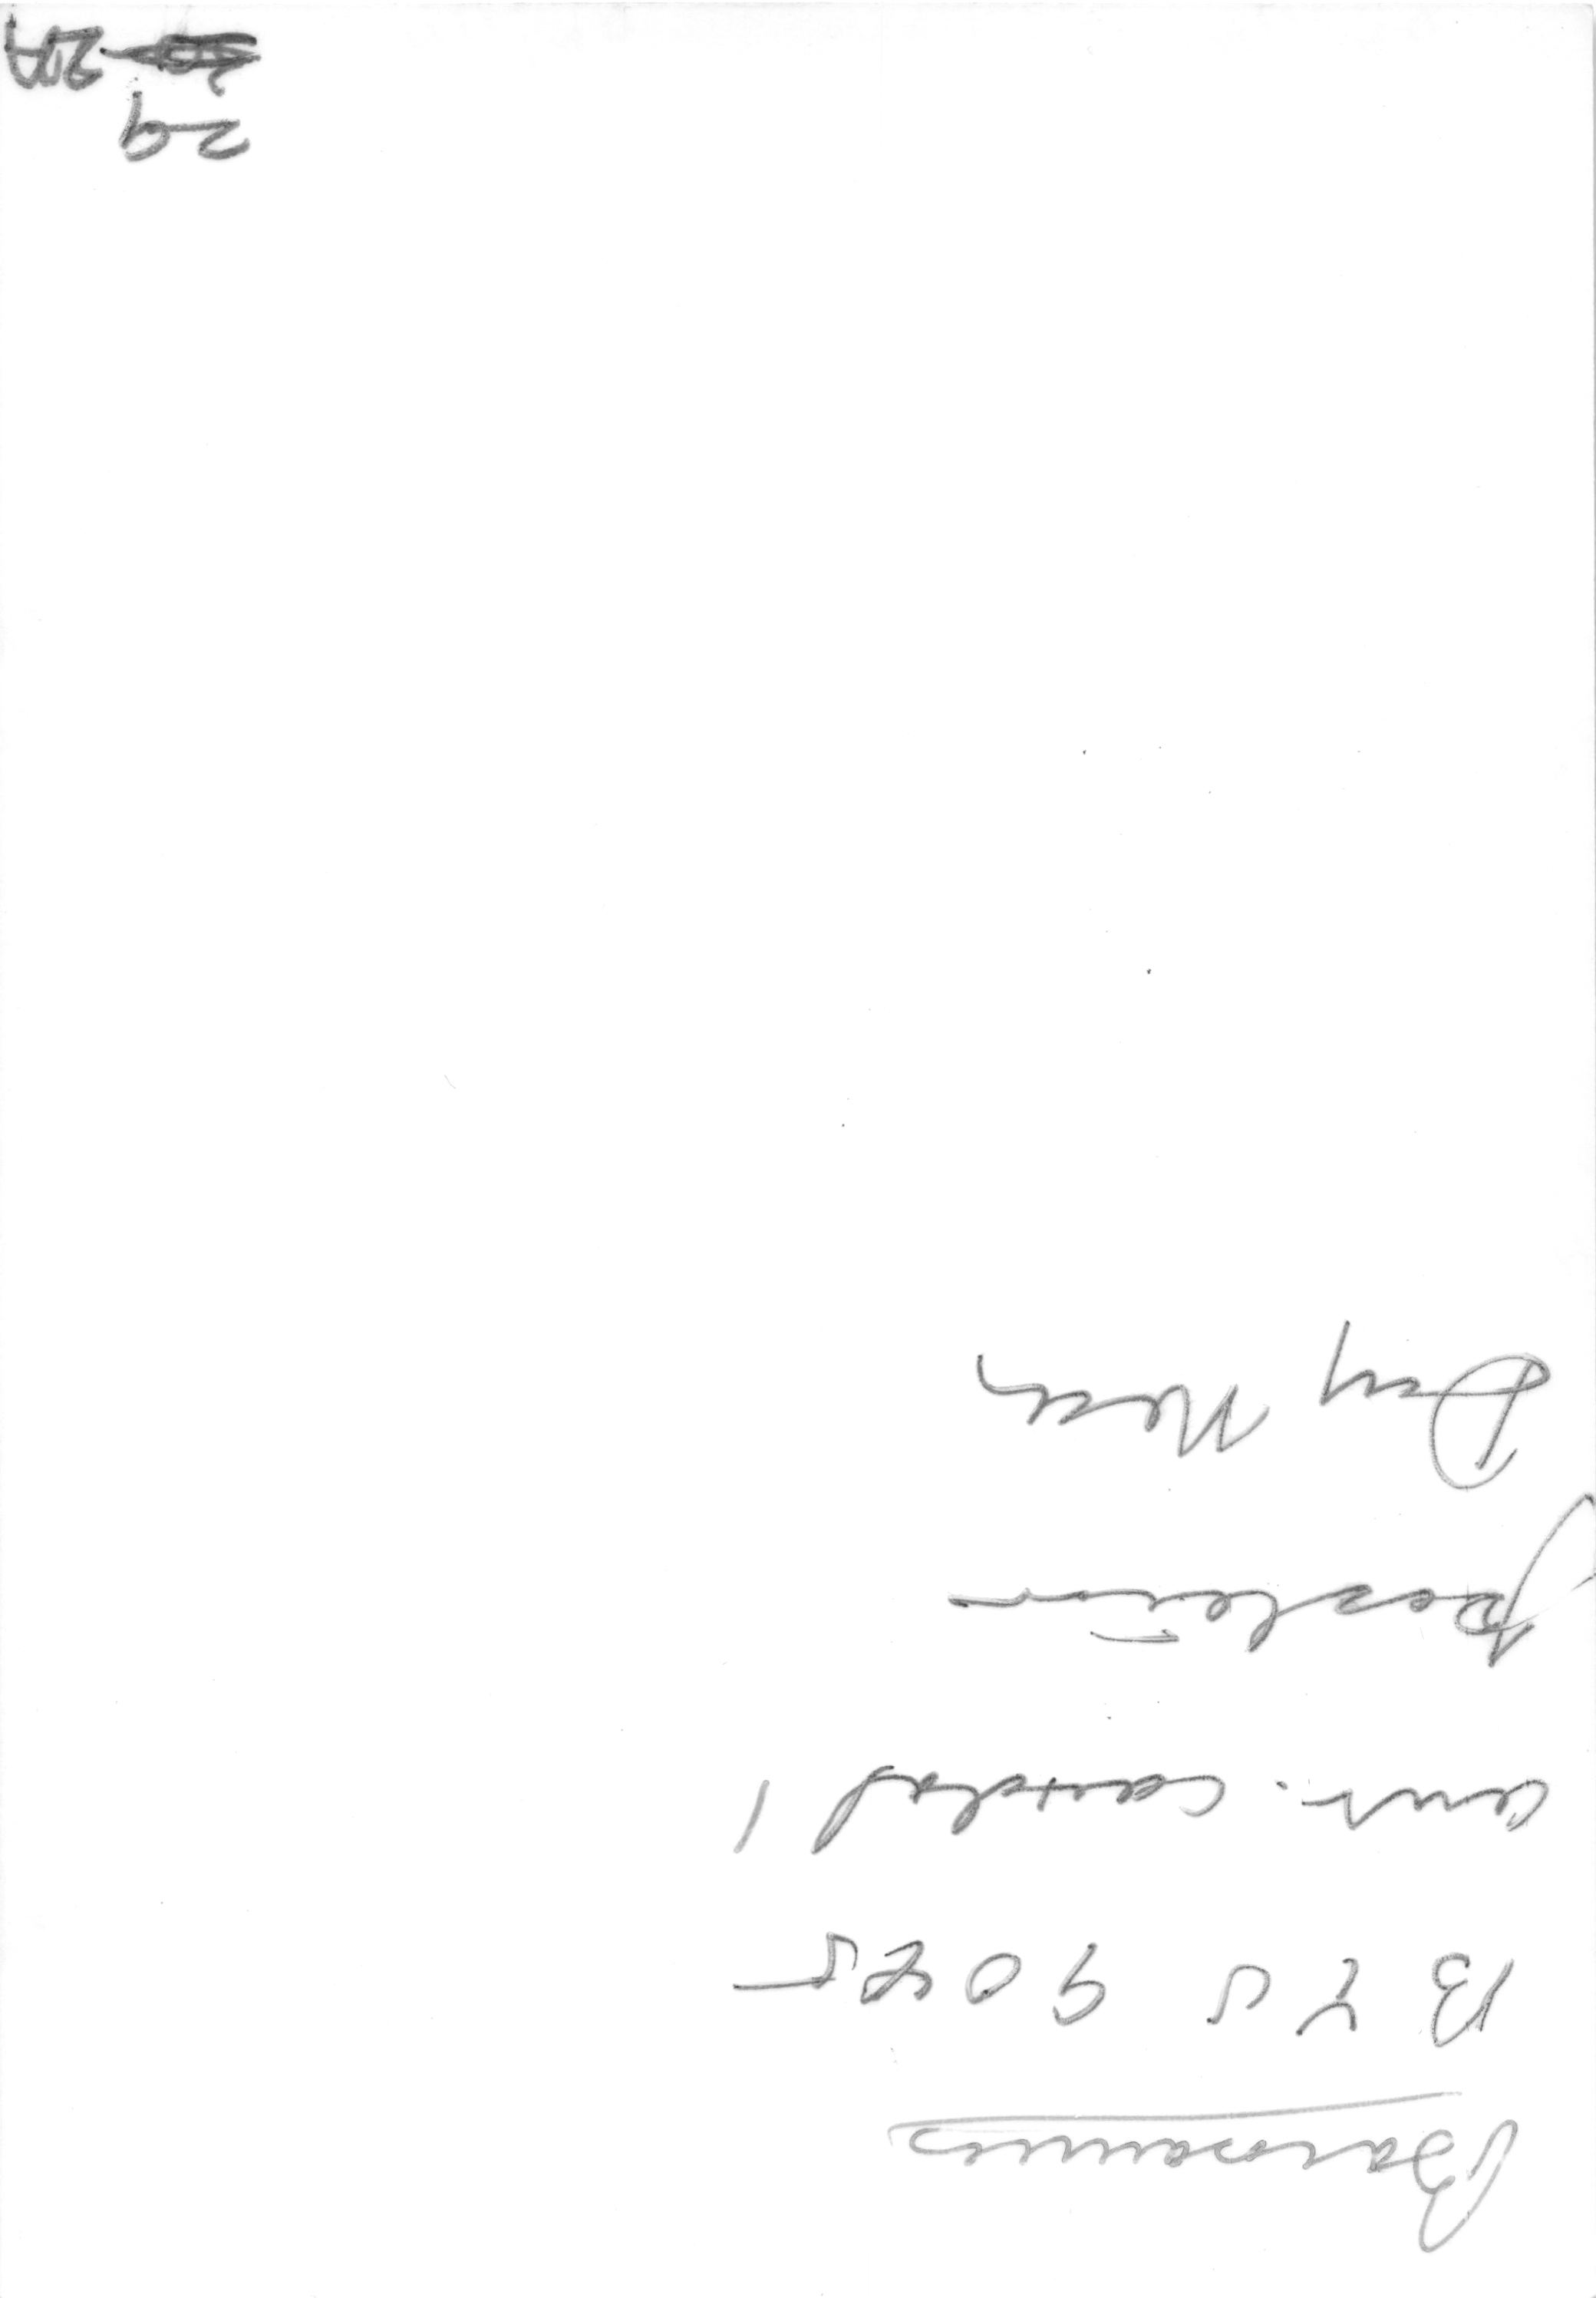 Barosaurus
BYU 9045
ant. caudal 1
posterior
Dry Mesa
29
2A